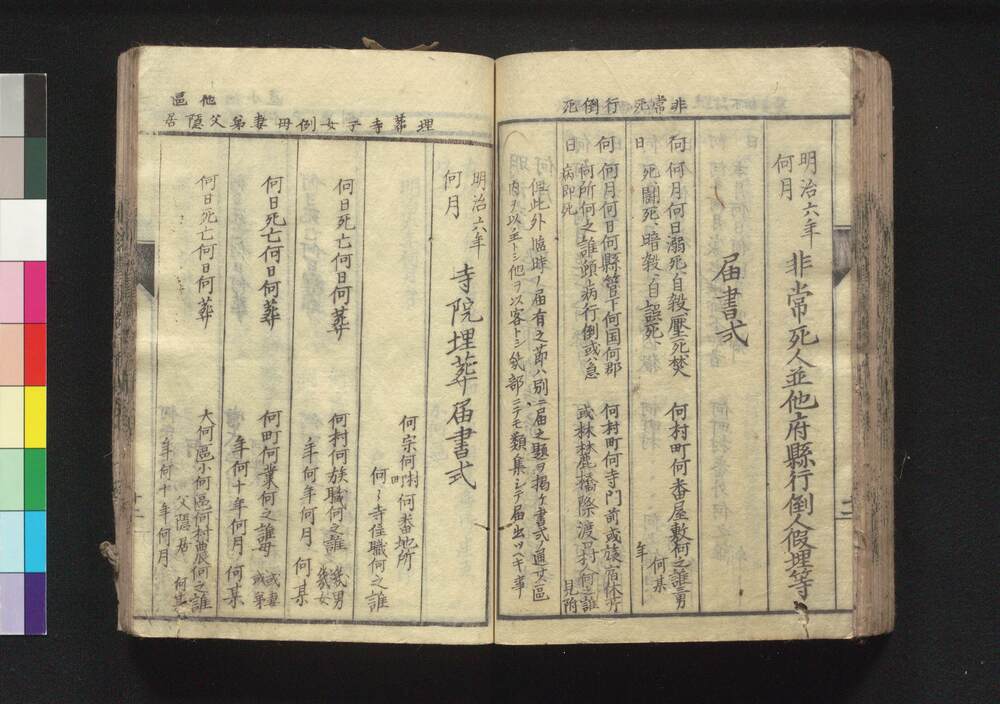 非常死 行倒死
明治六年
何月
非常死人並他府縣行倒人假埋等
届書式
何 何月何日溺死、自殺、壓死、焚 何村町何番屋敷何之誰男
日 死、鬪死、暗殺、自誤死、 年 何某
何 何月何日何縣管下何国何郡 何村町何寺門前或旅宿休所
何所何之誰頭病行倒或ハ急 或林藪橋際渡場何之誰
日 病即死 見附
但此外臨時ノ届有之節ハ別ニ届之題ヲ掲ケ書式ノ通女区
内ヲ以主トシ他ヲ以客トシ幾部ニテモ類集シテ届出ツヘキ事
他區
埋葬寺子女倒母妻弟父隠居
明治六年
何月
寺院埋葬届書式
何宗何村町何番地所
何々寺住職何之誰
何日死亡何日何葬 何村何族職何之誰 幾男 幾女
年何年何月 何某
何日死亡何日何葬 何町何業何之誰母 或妻 或弟
年何十年何月 何某
何日死亡何日何葬 大何區小何區何村農何之誰
父隠居 何某
年何十年何月
十二